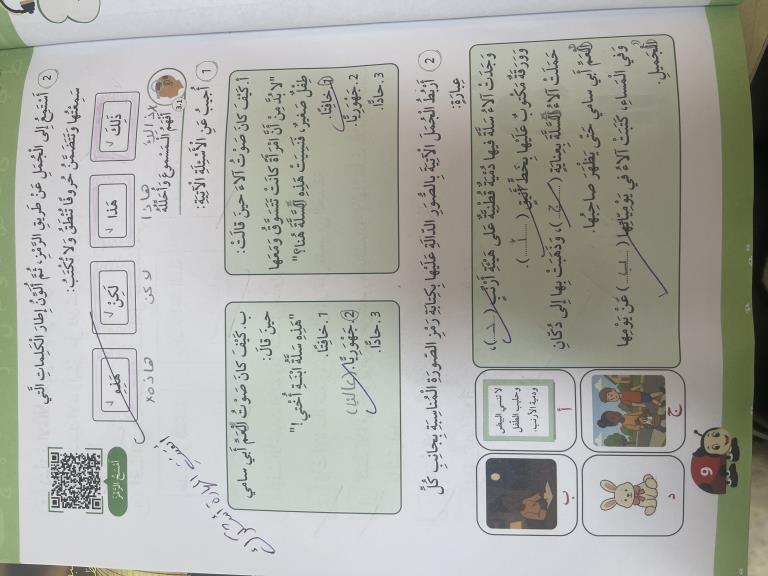 2 أَسْتَمِعُ إِلَى الْجُمَلِ عَنْ طَرِيقِ الرَّمْزِ، ثُمَّ أُلَوِّنُ إِطَارَ الْكَلِمَاتِ الَّتِي
سَمِعْتُهَا وَتَتَضَمَّنُ حُروفًا تُنْطَقُ وَلَا تُكْتَبُ:
أستمع الرمز
ذَلِكَ ✓
هَذَا ✓
لَكِنْ ✓
هَذِهِ
هاذا
لاكن
هاذه
3.1
أَفْهَمُ الْمَسْمُوعَ وَأُحَلِّلُهُ
1 أُجِيبُ عَنِ الْأَسْئِلَةِ الْآتِيَةِ:
أ. كَيْفَ كَانَ صَوْتُ آلاءَ حِينَ قَالَتْ:
"لَا بُدَّ مِنْ أَنَّ امْرَأَةً كَانَتْ تَتَسَوَّقُ وَمَعَهَا
طِفْلٌ صَغِيرٌ، فَنَسِيَتْ هَذِهِ السَّلَّةَ هُنَا؟"
1. خَافِتًا.
2. جَهْوَرِيًّا.
3. حَادًّا.
ب. كَيْفَ كَانَ صَوْتُ الْعَمِّ أَبِي سَامِي
حِينَ قَالَ:
"هَذِهِ سَلَّةُ ابْنَةِ أُخْتِي!"
1. خَافِتًا.
2. جَهْوَرِيًّا. (عاليًا)
3. حَادًّا.
2 أَرْبِطُ الْجُمَلَ الْآتِيَةَ بِالصُّوَرِ الدَّالَّةِ عَلَيْهَا بِكِتَابَةِ رَمْزِ الصُّورَةِ الْمُنَاسِبَةِ بِجَانِبِ كُلِّ
عِبارَةٍ:
وَجَدَتْ آلاءُ سَلَّةً فِيهَا دُمْيَةٌ قُطْنِيَّةٌ عَلَى هَيْئَةِ أَرْنَبٍ (د)،
وَوَرَقَةٌ مَكْتُوبٌ عَلَيْهَا بِخَطٍّ أَنِيقٍ (أ).
حَمَلَتْ آلاءُ السَّلَّةَ بِعِنَايَةٍ (ج)، وَذَهَبَتْ بِهَا إِلَى دُكَّانِ
الْعَمِّ أَبِي سَامِي حَتَّى يَظْهَرَ صَاحِبُهَا.
وَفِي الْمَسَاءِ، كَتَبَتْ آلاءُ فِي يَوْمِيَّاتِهَا (ب) عَنْ يَوْمِهَا
الْجَمِيلِ.
لا تنسي البيض
وحليب الطفل
ودمية الأرنب.
أ
ب
ج
د
9